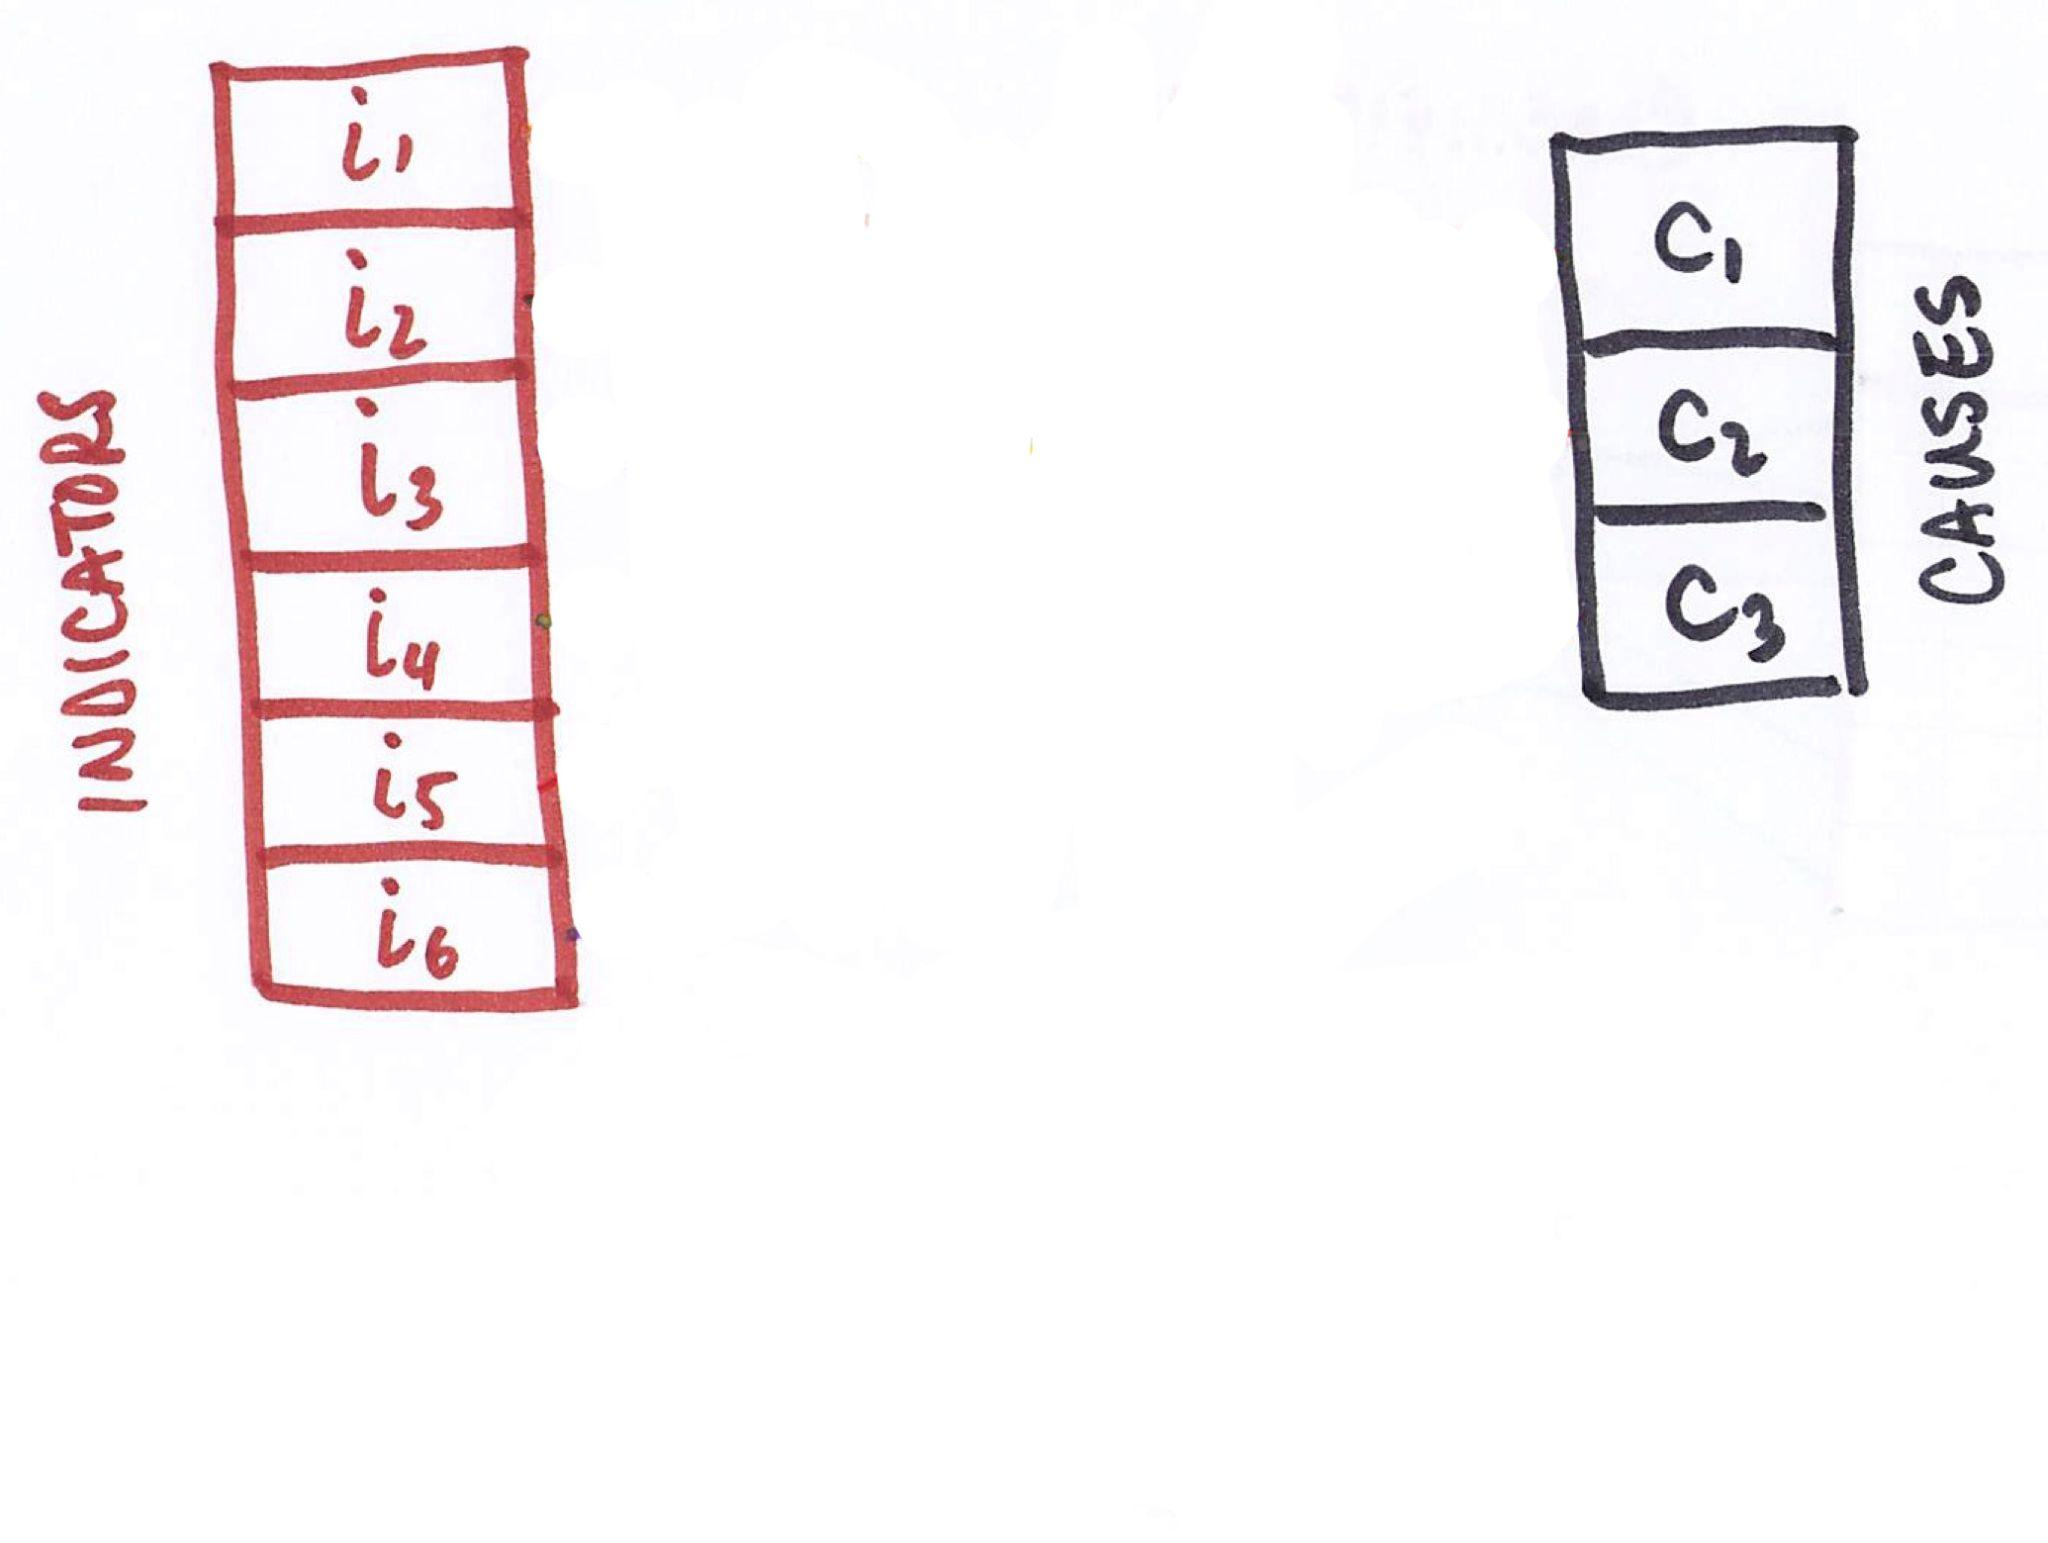 INDICATORS
i1
i2
i3
i4
i5
i6
C1
C2
C3
CAUSES